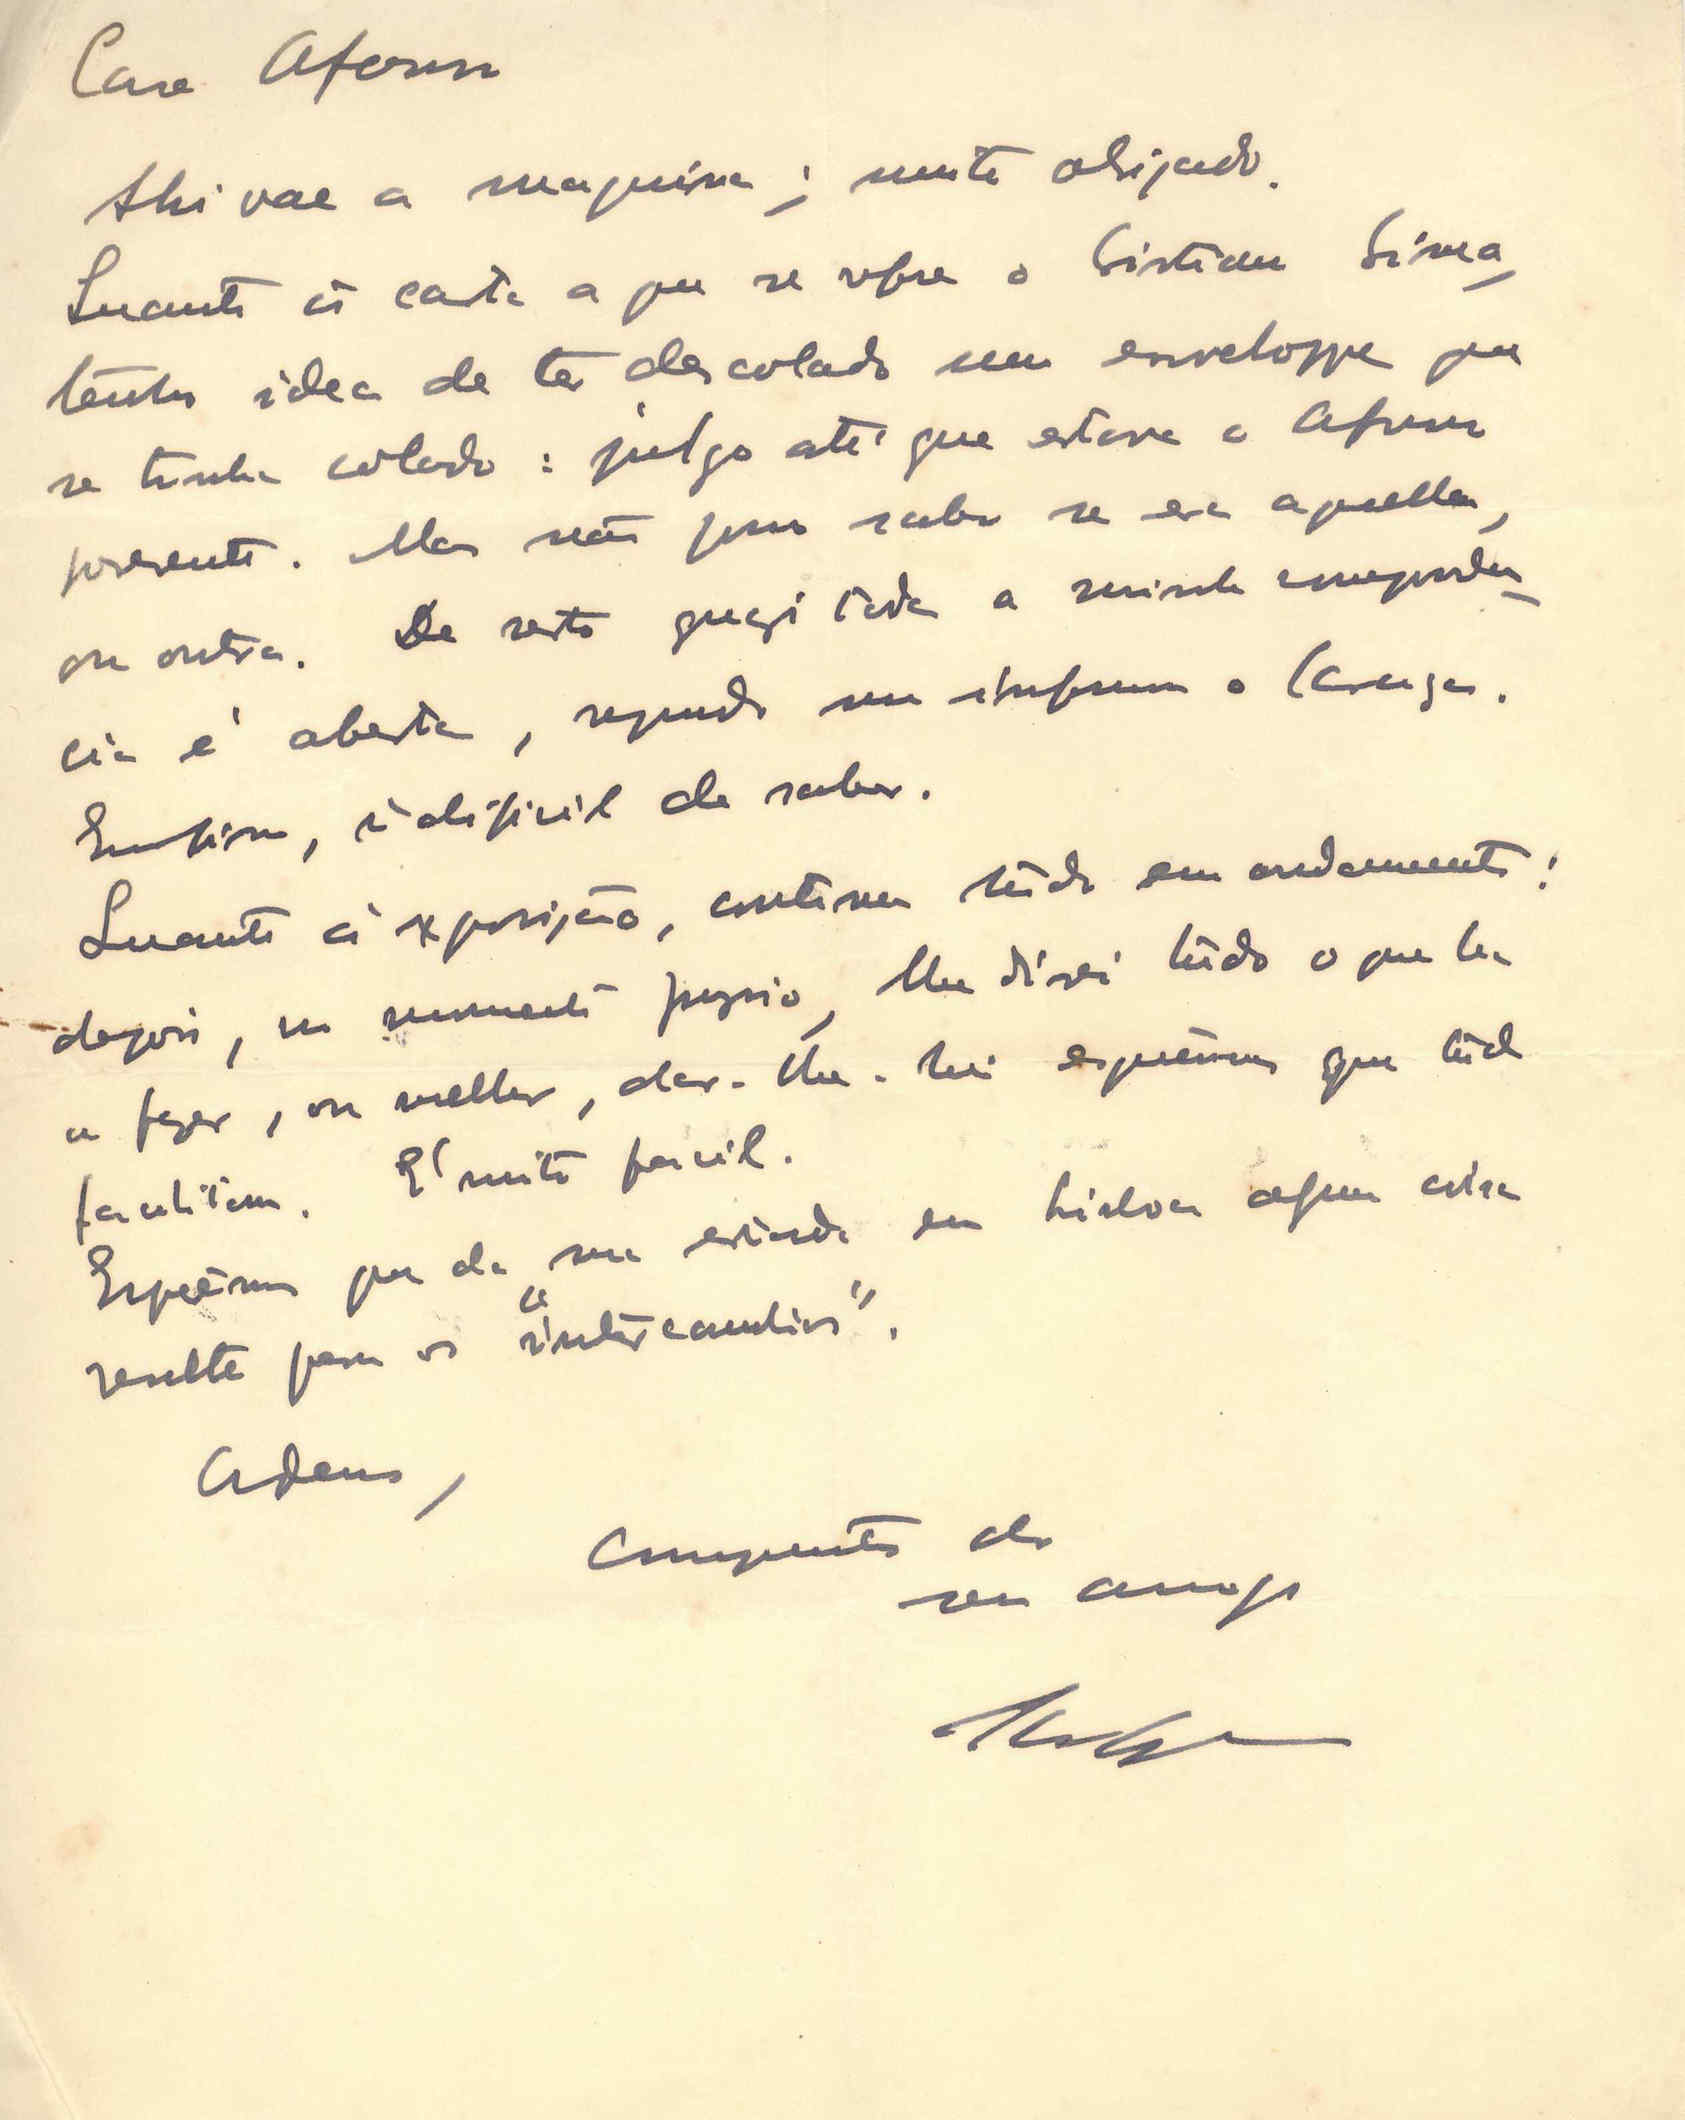 Caro Afonso
Ahi vae a maquina; muito obrigado.
Quanto á carta a que se refere o Cristiam Lima,
tenho idea de ter descolado um enveloppe que
se tinha colado: julgo até que estava o Afonso
presente. Mas não posso saber se era aquella,
ou outra. De resto quazi toda a minha corresponden-
cia é aberta, segundo me informa o
Emfim, é dificil de saber.
Quanto á exposição, continua tudo em andamento:
depois, no momento proprio, lhe direi tudo o que ha
a fazer, ou melhor, dar-lhe-hei esquemas que tudo
facilitam. É muito facil.
Esperemos que da sua estada em Lisboa alguma coisa
resulte para os "intercambios".
Adeus,
Cumprimentos do
seu amigo